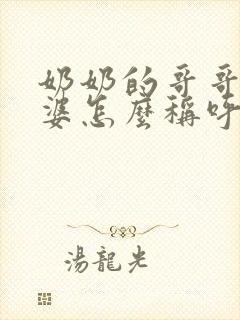 奶奶的哥哥
婆怎麼稱呼
湯龍光